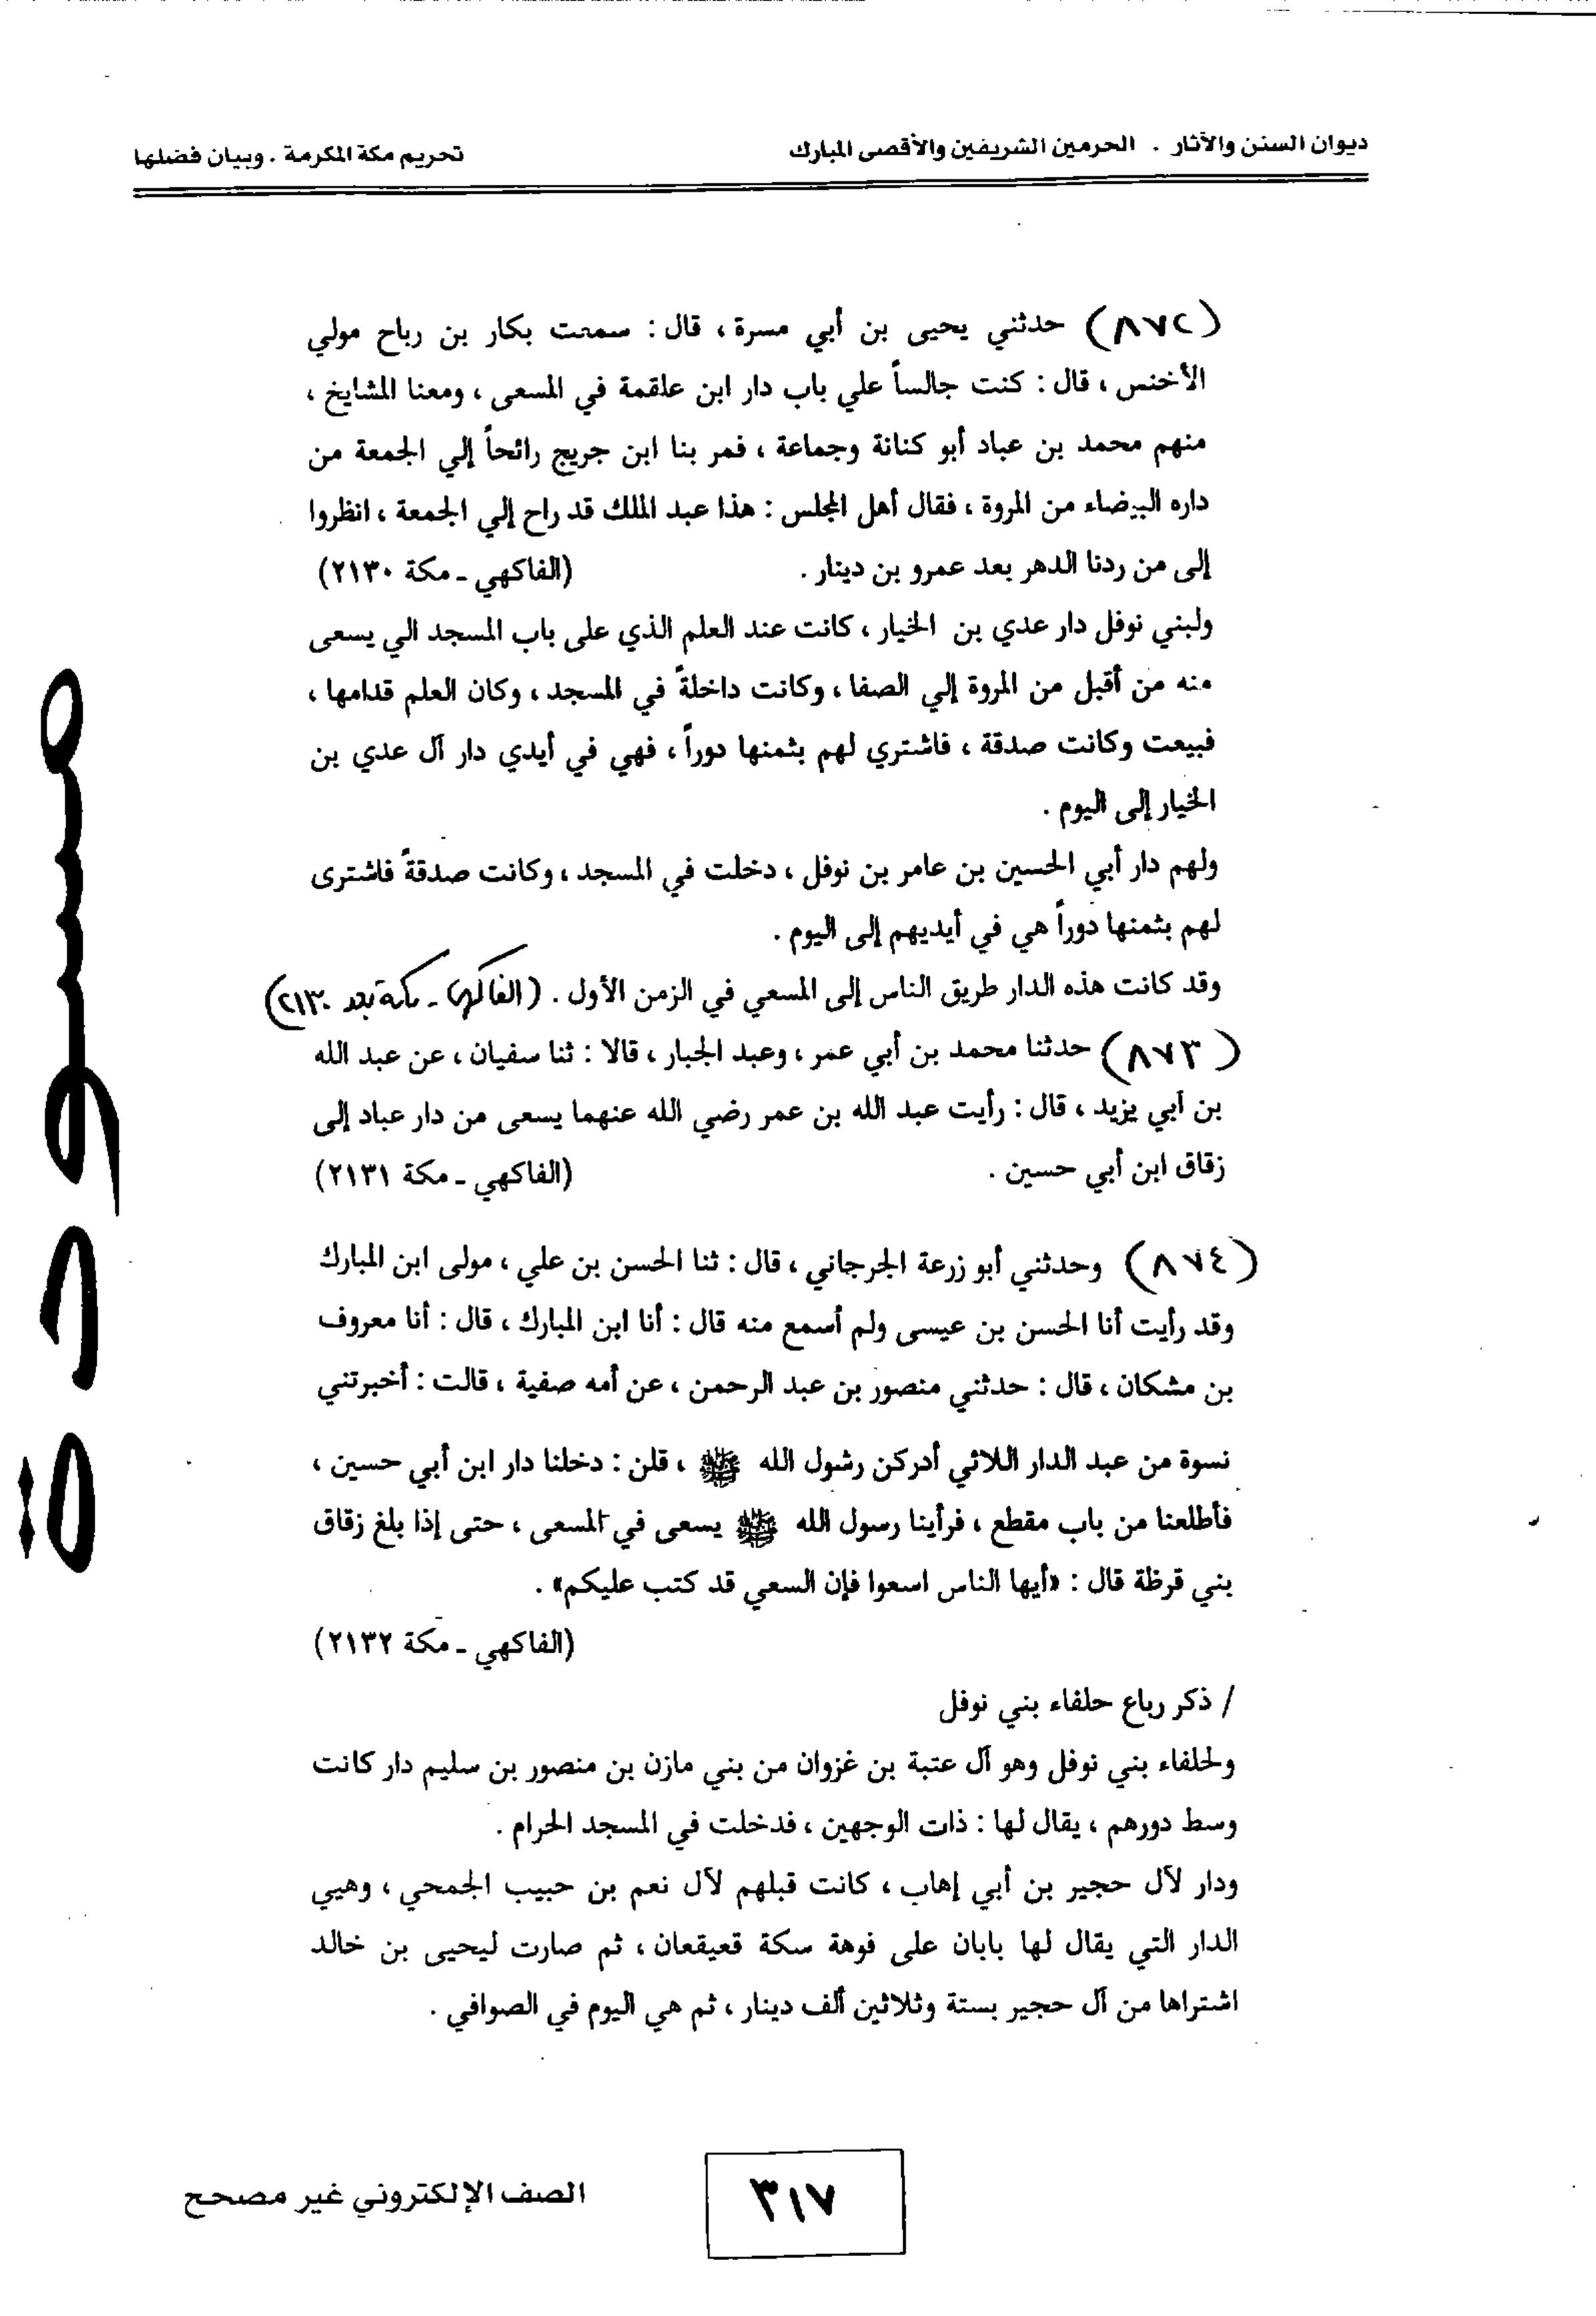 ديوان السنن والآثار . الحرمين الشريفين والأقصى المبارك
تحريم مكة المكرمة . وبيان فضلها
(٨٧٢) حدثني يحيى بن أبي مسرة ، قال : سمعت بكار بن رباح مولي
الأخنس ، قال : كنت جالساً علي باب دار ابن علقمة في المسعى ، ومعنا المشايخ ،
منهم محمد بن عباد أبو كنانة وجماعة ، فمر بنا ابن جريج رائحاً إلي الجمعة من
داره البيضاء من المروة ، فقال أهل المجلس : هذا عبد الملك قد راح إلي الجمعة ، انظروا
إلى من ردنا الدهر بعد عمرو بن دينار . (الفاكهي ـ مكة ٢١٣٠)
ولبني نوفل دار عدي بن الخيار ، كانت عند العلم الذي على باب المسجد الي يسعى
منه من أقبل من المروة إلي الصفا ، وكانت داخلةً في المسجد ، وكان العلم قدامها ،
فبيعت وكانت صدقة ، فاشتري لهم بثمنها دوراً ، فهي في أيدي دار آل عدي بن
الخيار إلى اليوم .
ولهم دار أبي الحسين بن عامر بن نوفل ، دخلت في المسجد ، وكانت صدقةً فاشترى
لهم بثمنها دوراً هي في أيديهم إلى اليوم .
وقد كانت هذه الدار طريق الناس إلى المسعي في الزمن الأول . (الفاكهي ـ مكة بعد ٢١٣٠)
(٨٧٣) حدثنا محمد بن أبي عمر ، وعبد الجبار ، قالا : ثنا سفيان ، عن عبد الله
بن أبي يزيد ، قال : رأيت عبد الله بن عمر رضي الله عنهما يسعى من دار عباد إلى
زقاق ابن أبي حسين . (الفاكهي ـ مكة ٢١٣١)
(٨٧٤) وحدثني أبو زرعة الجرجاني ، قال : ثنا الحسن بن علي ، مولى ابن المبارك
وقد رأيت أنا الحسن بن عيسى ولم أسمع منه قال : أنا ابن المبارك ، قال : أنا معروف
بن مشكان ، قال : حدثني منصور بن عبد الرحمن ، عن أمه صفية ، قالت : أخبرتني
نسوة من عبد الدار اللائي أدركن رسول الله ﷺ ، قلن : دخلنا دار ابن أبي حسين ،
فأطلعنا من باب مقطع ، فرأينا رسول الله ﷺ يسعى في المسعى ، حتى إذا بلغ زقاق
بني قرظة قال : «أيها الناس اسعوا فإن السعي قد كتب عليكم» .
(الفاكهي ـ مكة ٢١٣٢)
/ ذكر رباع حلفاء بني نوفل
ولحلفاء بني نوفل وهو آل عتبة بن غزوان من بني مازن بن منصور بن سليم دار كانت
وسط دورهم ، يقال لها : ذات الوجهين ، فدخلت في المسجد الحرام .
ودار لآل حجير بن أبي إهاب ، كانت قبلهم لآل نعم بن حبيب الجمحي ، وهيي
الدار التي يقال لها بابان على فوهة سكة قعيقعان ، ثم صارت ليحيى بن خالد
اشتراها من آل حجير بستة وثلاثين ألف دينار ، ثم هي اليوم في الصوافي .
٣١٧
الصف الإلكتروني غير مصحح
مسودة